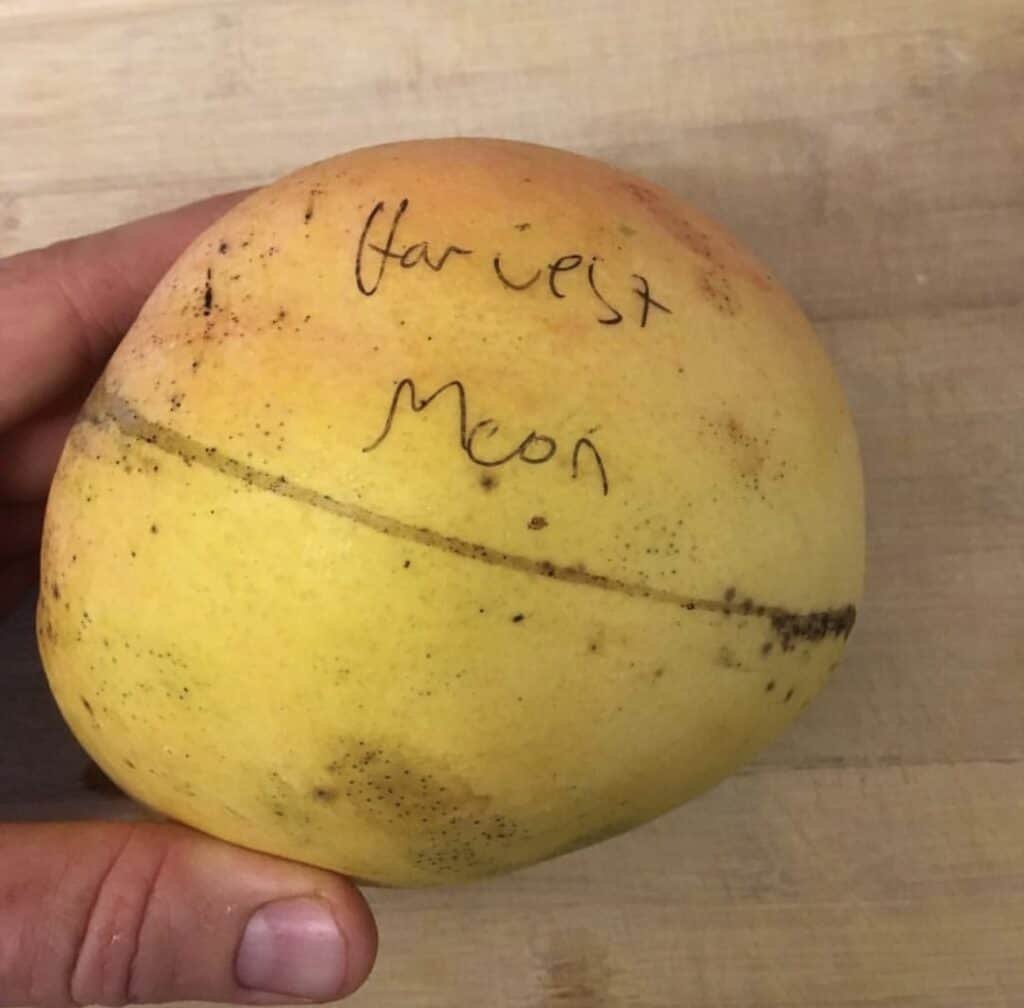 Harvest
Moon